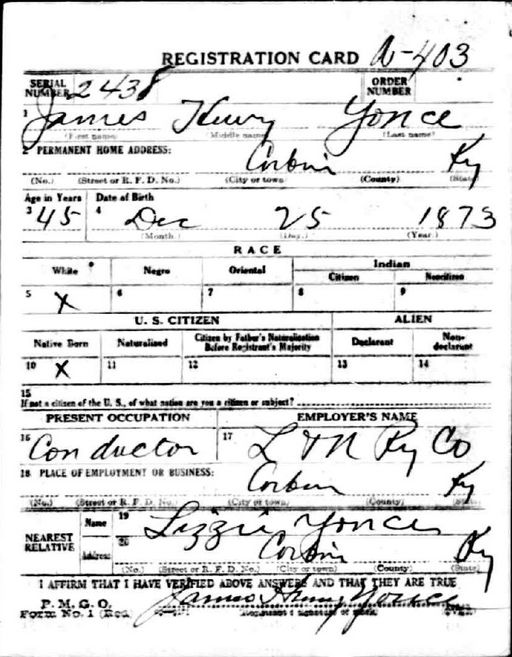 REGISTRATION CARD A-403
SERIAL NUMBER 2438 ORDER NUMBER
1 James Henry Yonce
(First name) (Middle name) (Last name)
2 PERMANENT HOME ADDRESS: Corbin Ky
(No.) (Street or R. F. D. No.) (City or town) (County) (State)
Age in Years Date of Birth
3 45 4 Dec 25 1873
(Month.) (Day.) (Year.)
RACE
White Negro Oriental Indian
Citizen Noncitizen
5 X 6 7 8 9
U. S. CITIZEN ALIEN
Native Born Naturalized Citizen by Father's Naturalization Before Registrant's Majority Declarant Non-declarant
10 X 11 12 13 14
15
If not a citizen of the U. S., of what nation are you a citizen or subject?
PRESENT OCCUPATION EMPLOYER'S NAME
16 Conductor 17 L & N Ry Co
18 PLACE OF EMPLOYMENT OR BUSINESS: Corbin Ky
(No.) (Street or R. F. D. No.) (City or town) (County) (State)
NEAREST RELATIVE Name 19 Lizzie Yonce
Address 20 Corbin Ky
(No.) (Street or R. F. D. No.) (City or town) (County) (State)
I AFFIRM THAT I HAVE VERIFIED ABOVE ANSWERS AND THAT THEY ARE TRUE
P. M. G. O.
Form No. 1 (Red) James Henry Yonce
(Registrant's signature or mark)